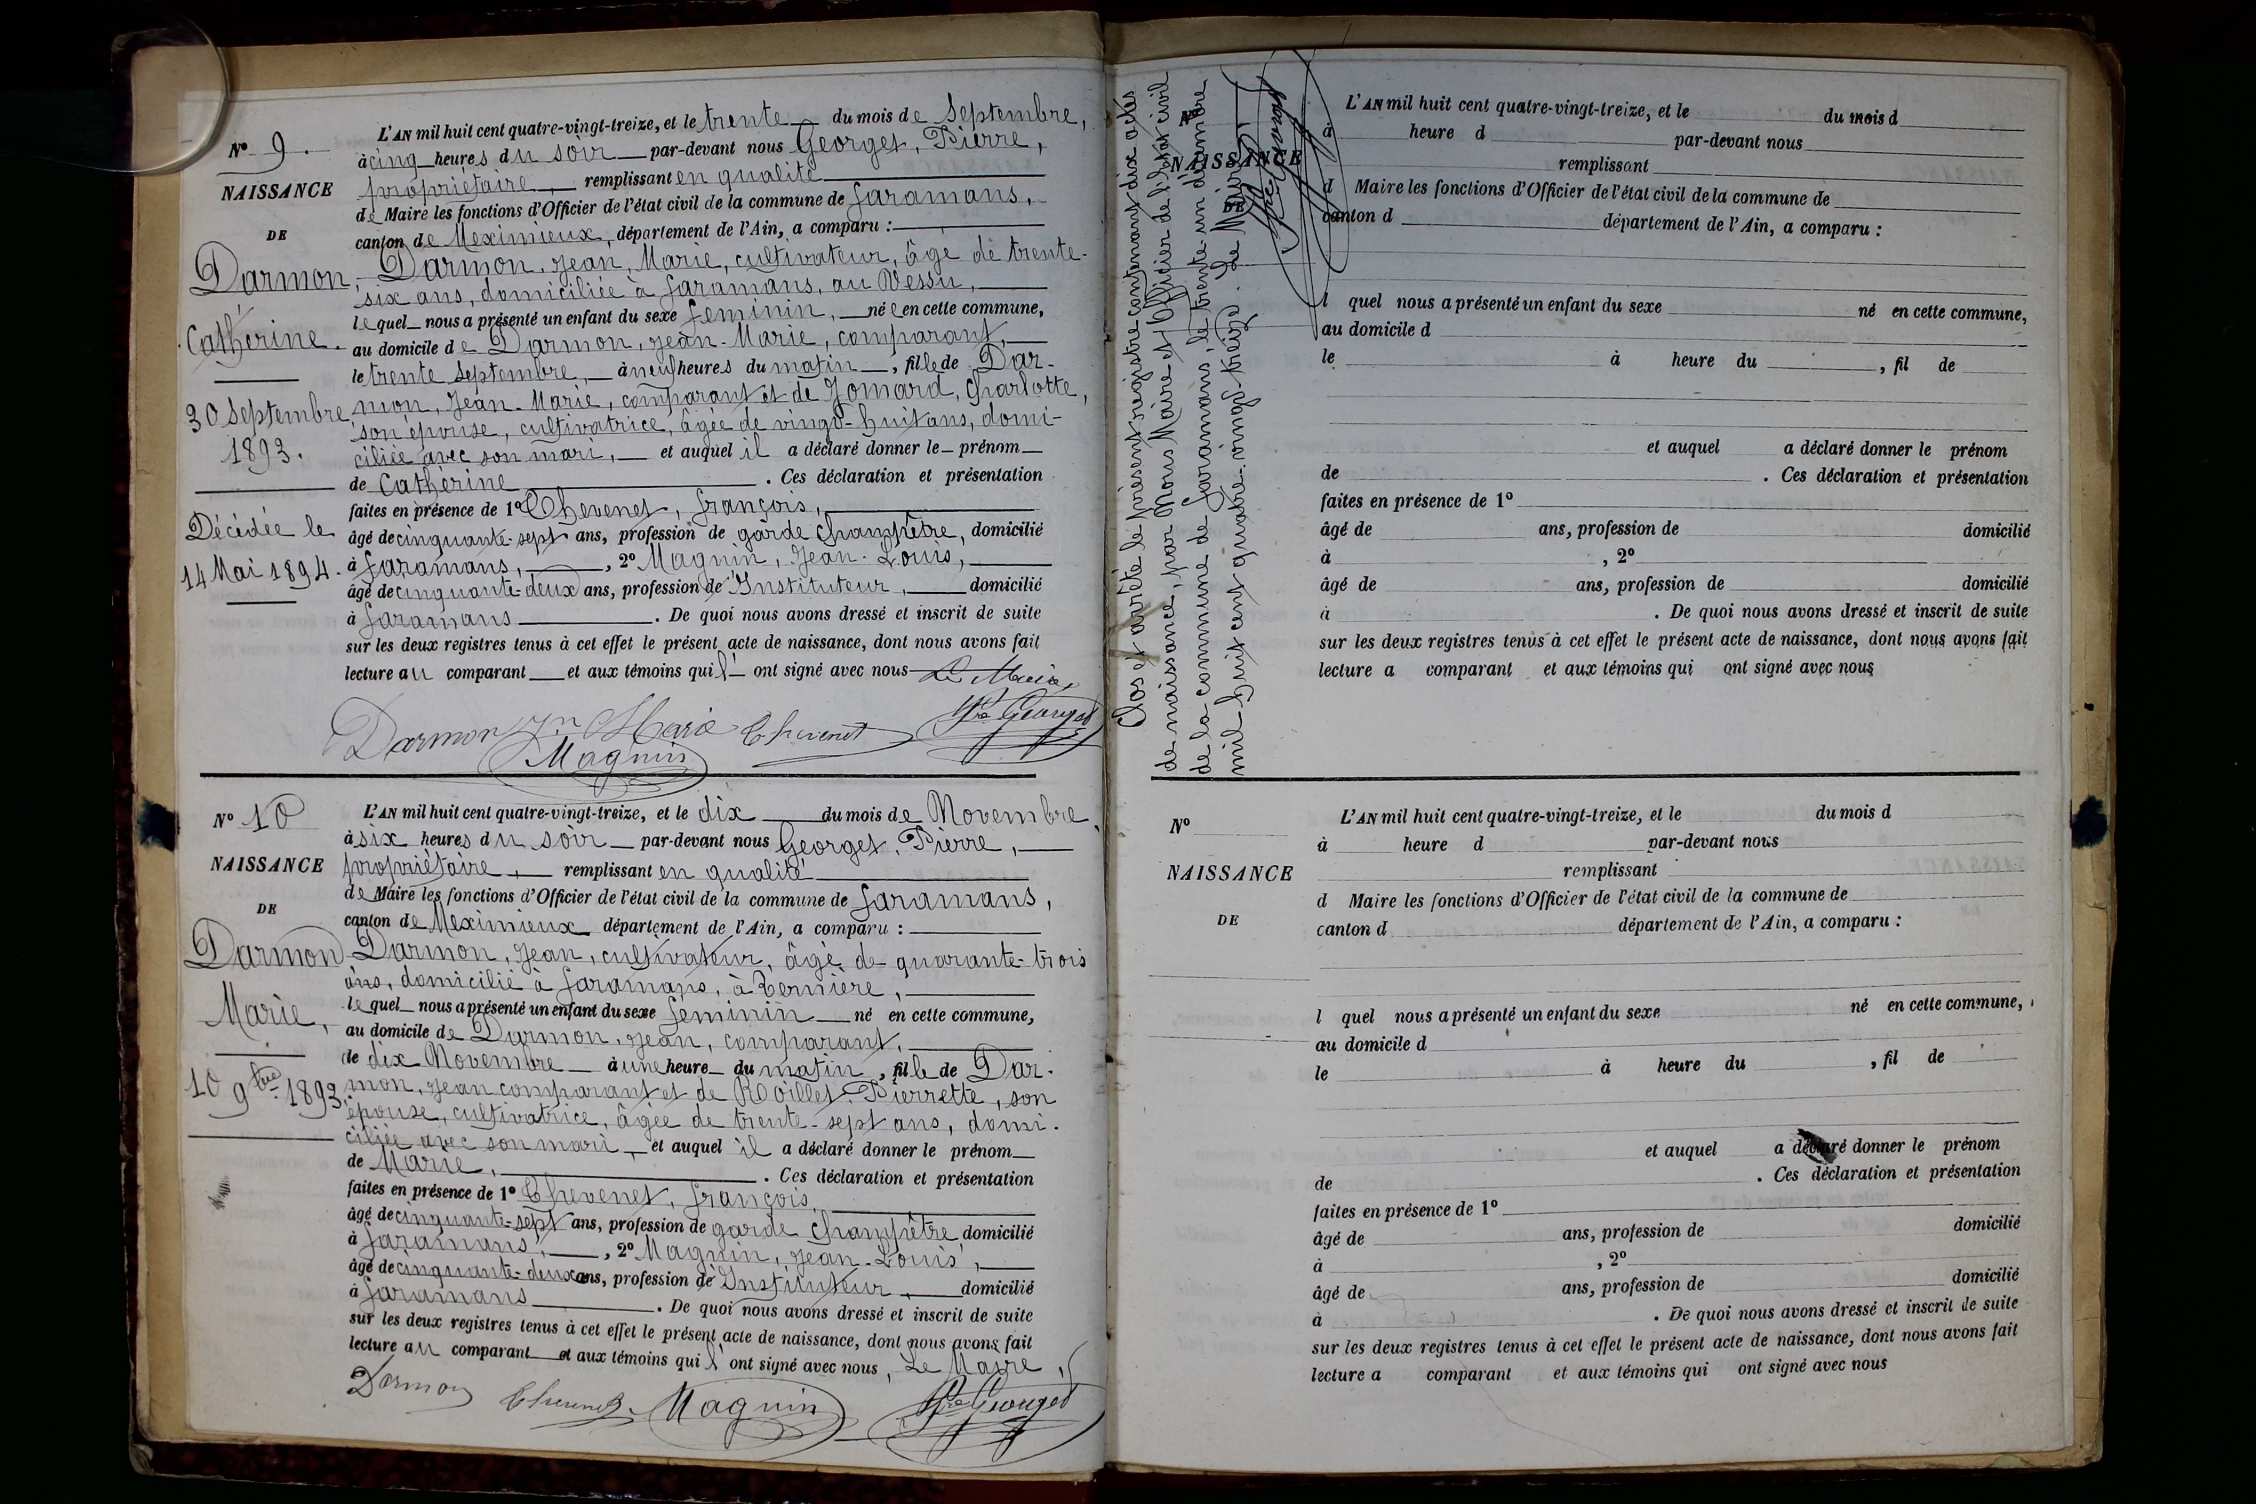 N° 9.
NAISSANCE
DE
Darmon,
Catherine.
30 Septembre
1893.
Décédée le
14 Mai 1894.
L'AN mil huit cent quatre-vingt-treize, et le trente du mois de Septembre,
à cinq heures du soir par-devant nous Georget, Pierre,
propriétaire, remplissant en qualité
de Maire les fonctions d'Officier de l'état civil de la commune de Faramans,
canton de Meximieux, département de l'Ain, a comparu :
Darmon, Jean, Marie, cultivateur, âgé de trente-
six ans, domiciliée à Faramans, au
lequel nous a présenté un enfant du sexe féminin, née en cette commune,
au domicile de Darmon, Jean-Marie, comparant,
le trente Septembre, à neuf heures du matin, fille de Dar-
mon, Jean-Marie, comparant et de Jomard, Charlotte,
son épouse, cultivatrice, âgée de vingt-huit ans, domi-
ciliée avec son mari, et auquel il a déclaré donner le prénom
de Catherine. Ces déclaration et présentation
faites en présence de 1° Chevenet, François,
âgé de cinquante-sept ans, profession de garde champêtre, domicilié
à Faramans, , 2° Magnin, Jean-Louis,
âgé de cinquante-deux ans, profession de Instituteur, domicilié
à Faramans. De quoi nous avons dressé et inscrit de suite
sur les deux registres tenus à cet effet le présent acte de naissance, dont nous avons fait
lecture au comparant et aux témoins qui l'ont signé avec nous Le Maire,
Darmon Jn Marie Chevenet Pre Georget
Magnin
N° 10
NAISSANCE
DE
Darmon
Marie,
10 9bre 1893.
L'AN mil huit cent quatre-vingt-treize, et le dix du mois de Novembre,
à six heures du soir par-devant nous Georget, Pierre,
propriétaire, remplissant en qualité
de Maire les fonctions d'Officier de l'état civil de la commune de Faramans,
canton de Meximieux département de l'Ain, a comparu :
Darmon, Jean, cultivateur, âgé de quarante-trois
ans, domicilié à Faramans, à
lequel nous a présenté un enfant du sexe féminin né en cette commune,
au domicile de Darmon, Jean, comparant,
le dix Novembre à une heure du matin, fille de Dar-
mon, Jean comparant et de Roillet, Pierrette, son
épouse, cultivatrice, âgée de trente-sept ans, domi-
ciliée avec son mari, et auquel il a déclaré donner le prénom
de Marie, . Ces déclaration et présentation
faites en présence de 1° Chevenet, François,
âgé de cinquante-sept ans, profession de garde champêtre domicilié
à Faramans, , 2° Magnin, Jean-Louis,
âgé de cinquante-deux ans, profession de Instituteur, domicilié
à Faramans. De quoi nous avons dressé et inscrit de suite
sur les deux registres tenus à cet effet le présent acte de naissance, dont nous avons fait
lecture au comparant et aux témoins qui l'ont signé avec nous, Le Maire,
Darmon Chevenet Magnin Pre Georget
Clos et arrêté le présent registre contenant dix actes
de naissance, par Nous Maire et Officier de l'état civil
de la commune de Faramans, le trente-un décembre
mil-huit cent quatre-vingt-treize. Le Maire,
Pre Georget
N°
NAISSANCE
DE
L'AN mil huit cent quatre-vingt-treize, et le du mois d
à heure d par-devant nous
remplissant
d Maire les fonctions d'Officier de l'état civil de la commune de
canton d département de l'Ain, a comparu :
l quel nous a présenté un enfant du sexe né en cette commune,
au domicile d
le à heure du , fil de
et auquel a déclaré donner le prénom
de . Ces déclaration et présentation
faites en présence de 1°
âgé de ans, profession de domicilié
à , 2°
âgé de ans, profession de domicilié
à . De quoi nous avons dressé et inscrit de suite
sur les deux registres tenus à cet effet le présent acte de naissance, dont nous avons fait
lecture a comparant et aux témoins qui ont signé avec nous
N°
NAISSANCE
DE
L'AN mil huit cent quatre-vingt-treize, et le du mois d
à heure d par-devant nous
remplissant
d Maire les fonctions d'Officier de l'état civil de la commune de
canton d département de l'Ain, a comparu :
l quel nous a présenté un enfant du sexe né en cette commune,
au domicile d
le à heure du , fil de
et auquel a déclaré donner le prénom
de . Ces déclaration et présentation
faites en présence de 1°
âgé de ans, profession de domicilié
à , 2°
âgé de ans, profession de domicilié
à . De quoi nous avons dressé et inscrit de suite
sur les deux registres tenus à cet effet le présent acte de naissance, dont nous avons fait
lecture a comparant et aux témoins qui ont signé avec nous